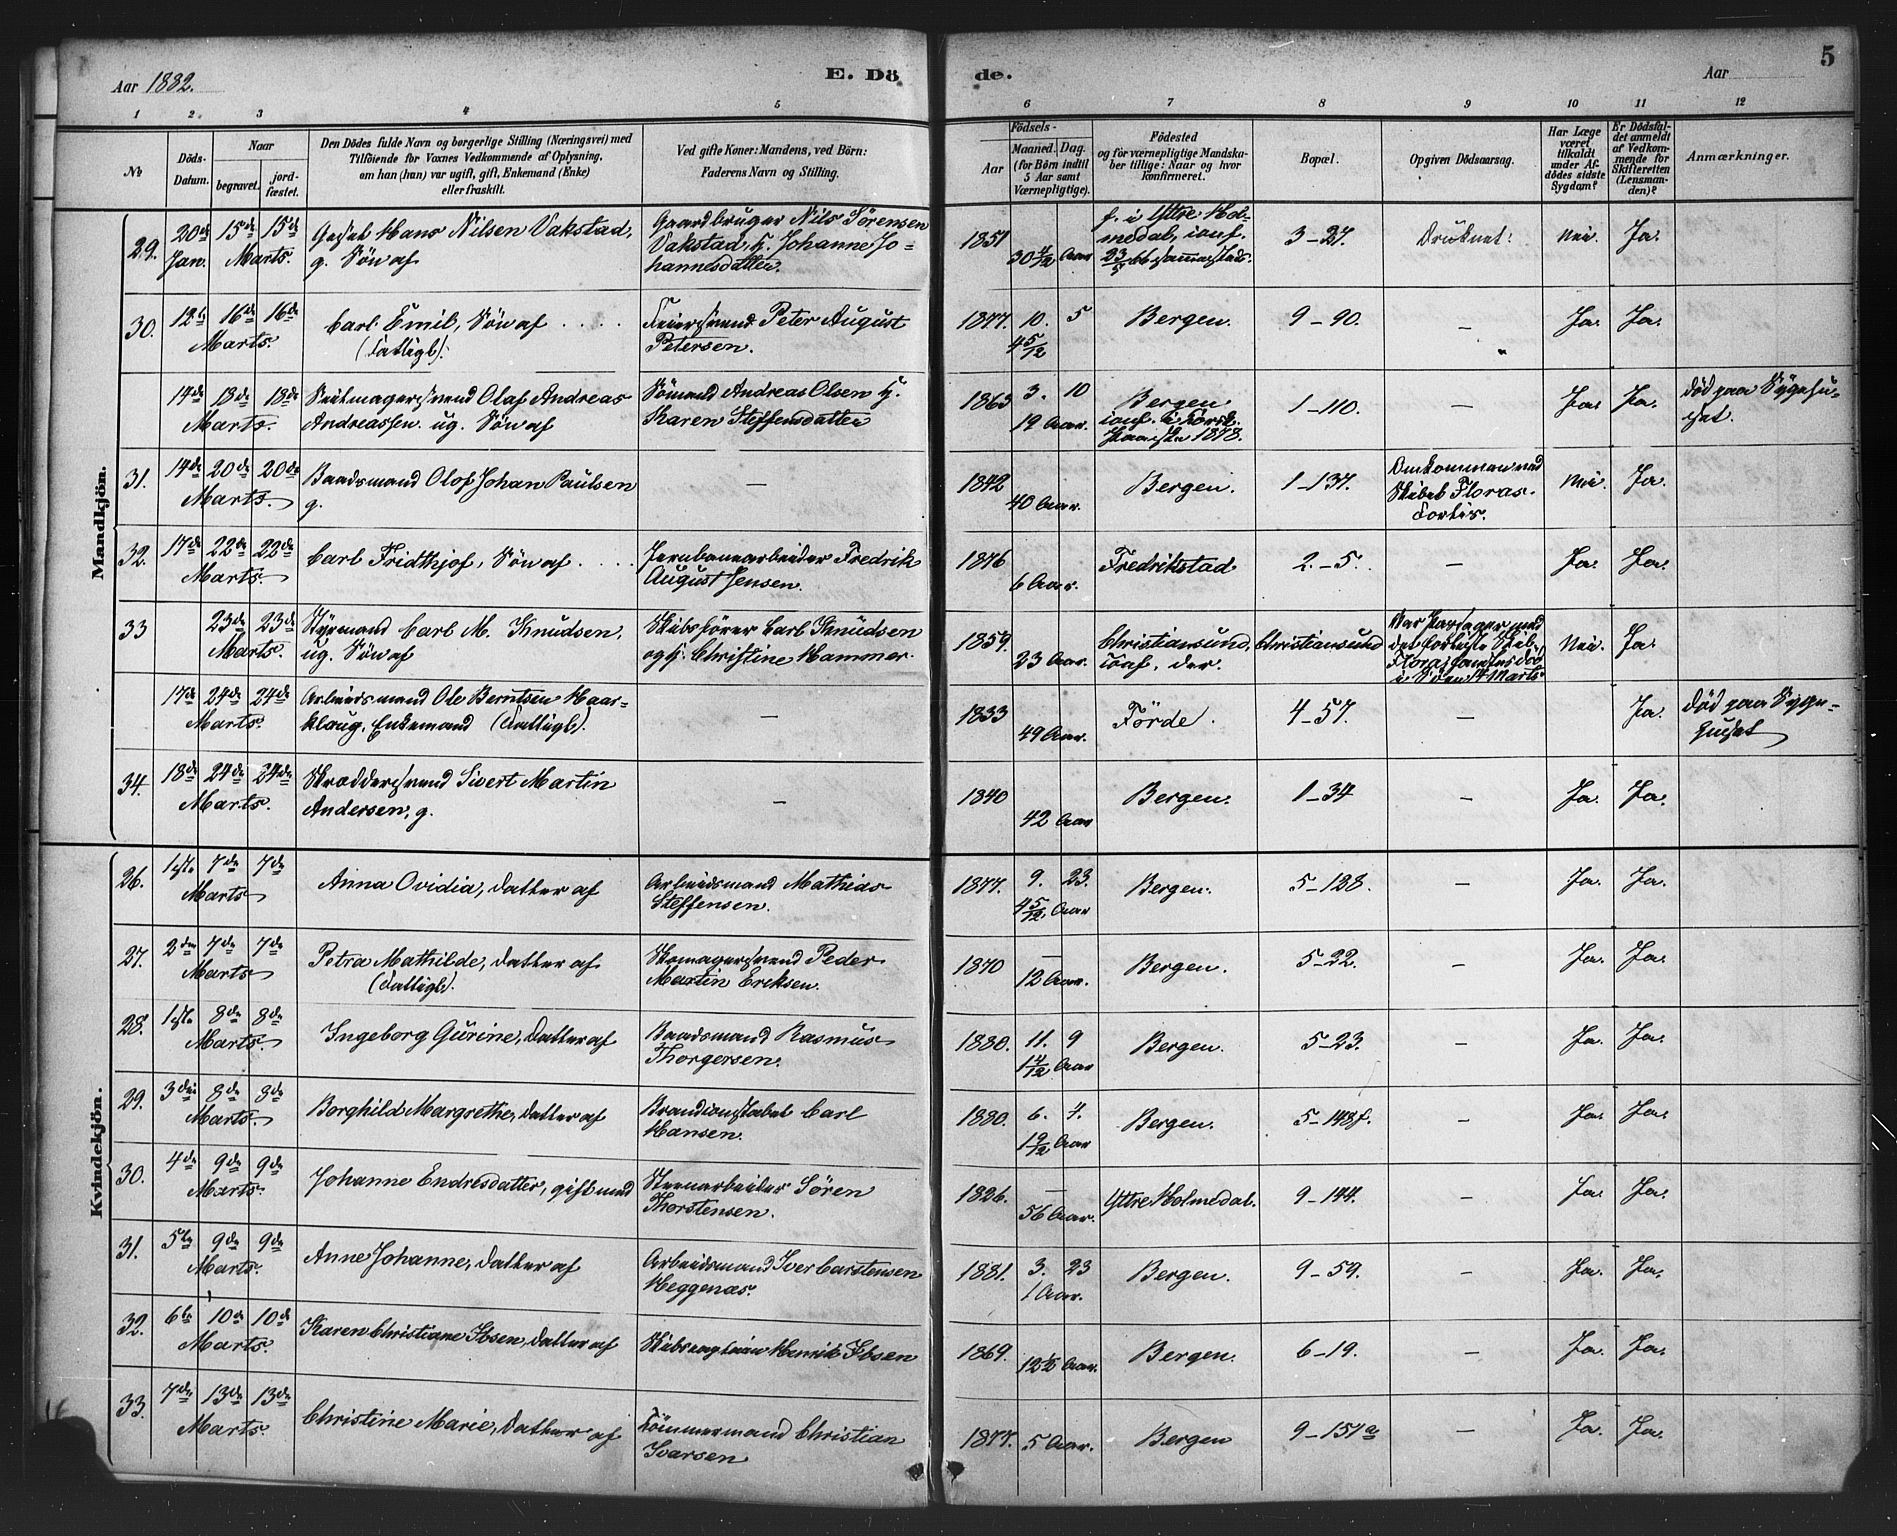 Aar 1882.
E. Dö
de.
Aar
5
1 2 3 4 5 6 7 8 9 10 11 12
№
Döds-Datum.
Naar
begravet.
jordfæstet.
Den Dödes fulde Navn og borgerlige Stilling (Næringsvei) med
Tilføiende for Voxnes Vedkommende af Oplysning,
om han (hun) var ugift, gift, Enkemand (Enke)
eller fraskilt.
Ved gifte Koner: Mandens, ved Börn:
Faderens Navn og Stilling.
Födsels-
Aar
Maaned. Dag.
(for Börn indtil
5 Aar samt
Værnepligtige).
Födested
og for værnepligtige Mandska-
ber tillige: Naar og hvor
konfirmeret.
Bopæl.
Opgiven Dödsaarsag.
Har Læge
været
tilkaldt
under Af-
dödes sidste
Sygdom?
Er Dödsfal-
det anmeldt
af Vedkom-
mende for
Skifteretten
(Lensman-
den)?
Anmærkninger.
Mandkjön.
29. 20de Jan. 15de 15de Marts. Hans Nilsen Vakstad, g. Søn af
Gaardbruger Nils Sørensen
Vakstad, H. Johanne Jo-
hannesdatter.
1851 30 4/12 Aar
f. i Yttre Hol-
medal, conf.
3-27. Druknet. Nei. Ja.
30. 12te 16de 16de Marts. Carl Emil, Søn af ....
(Fattigb).
Feiersvend Peter August
Petersen.
1877. 10. 5 4 5/12 Bergen. 9-90. - Ja. Ja.
14de 18de 18de Marts. Olaf Andreas
Andreassen ug. Søn af
Sömand Andreas Olsen H.
Karen Steffensdatter
1863 3. 10 19 Aar. Bergen
1878.
1-110. - Ja. Ja. død paa Sygehu-
set.
31. 14de 20de 20de Marts. Baadsmand Olof Johan Paulsen
g.
-
1842 40 Aar. Bergen. 1-137. Omkommen med
Skibet Floras
Forlis.
Nei. Ja.
32. 17de 22de 22de Marts. Carl Fridthjof, Søn af ....
Jernbanearbeider Fredrik
August Jensen.
1876 6 Aar. Fredrikstad 2.-5. - Ja. Ja.
33 23de 23de Marts. Styrmand Carl M. Knudsen,
ug. Søn af
Skibsfører Carl Knudsen
og H. Christine Hammer.
1859. 23 Aar. Christiansund, Christiansund
Var Passager med
det forliste Skib
Nei. Ja.
17de 24de 24de Marts. Arbeidsmand Ole Berntsen Haar-
klaug, Enkemand (Fattigb).
-
1833 49 Aar. Förde. 4-57. - Ja. død paa Syge-
huset
34. 18de 24de 24de Marts. Skræddersvend Sivert Martin
Andersen, g.
-
1840 42 Aar Bergen. 1-34 - Ja. Ja.
Kvindekjön.
26. 1ste 7de 7de Marts Anna Ovidia, Datter af
Arbeidsmand Mathias
Steffensen.
1877. 9. 23. 4 5/12 Aar Bergen. 5-128. - Ja. Ja.
27. 2den 7de 7de Marts Petra Mathilde, Datter af
(Fattigb).
Skomagersvend Peder
Martin Eriksen.
1870 - 12 Aar. Bergen. 5-22. - Ja. Ja.
28. 1ste 8de 8de Marts. Ingeborg Gurine, Datter af
Baadsmand Rasmus
Thorgersen.
1880. 11. 9 1 4/12 Aar Bergen. 5-23. - Ja. Ja.
29. 3die 8de 8de Marts. Borghild Margrethe, Datter af
Brandconstabel Carl
Hansen.
1880. 6. 4. 1 9/12 Aar Bergen. 5-148f. - Ja. Ja.
30. 4de 9de 9de Marts. Johanne Endresdatter, gift med
Stenarbeider Sören
Thorstensen.
1826. - 56 Aar. Yttre Holmedal. 9-144. - Ja. Ja.
31. 5te 9de 9de Marts. Anne Johanne, Datter af
Arbeidsmand Iver Carstensen
Heggenæs.
1881. 3. 23 1 Aar. Bergen. 9-59. - Ja. Ja.
32. 6te 10de 10de Marts. Karen Christiane Ibsen, Datter af
Skibscaptain Henrik Ibsen
1869. 12 1/2 Aar. Bergen. 6-19. Ja. Ja.
33. 7de 13de 13de Marts Christine Marie, Datter af
Tömmermand Christian
Ivarsen
1877. 5 Aar. Bergen 9-157a - Ja. Ja.